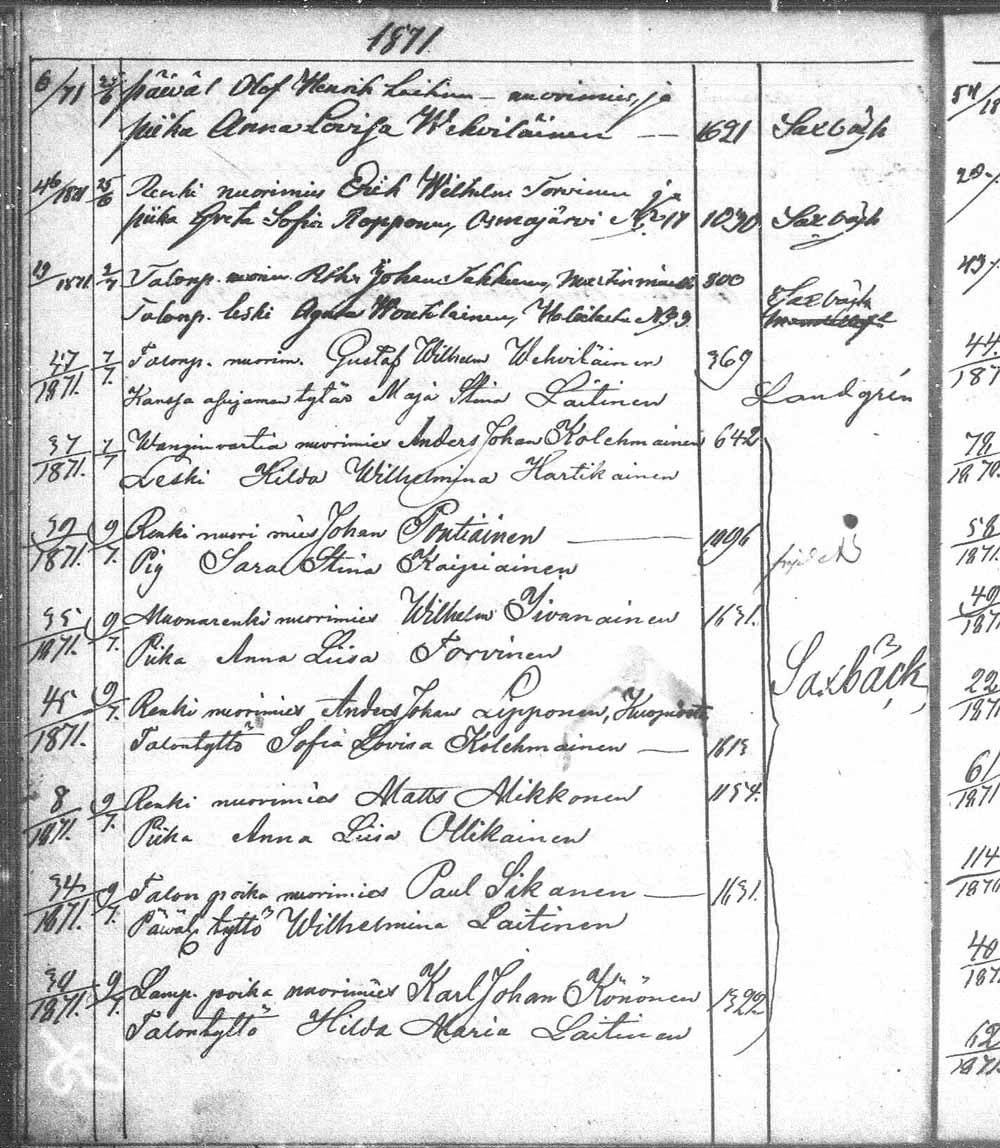 1871
6/71 25/6 päiväl Olof Henrik nuorimies, ja
piika Anna Lovisa Wehviläinen — 1691 Saxbäck
46/1871 25/6 Renki nuorimies Erik Wilhelm Torvinen ja
piika Greta Sofia Ropponen, Osmajärvi No 17 1030 Saxbäck
29/1871 2/7 Talonp. Johan 800
Talonp. leski Agata Woutilainen, No 3 Saxbäck
47/1871. 7/7. Talonp. nuorim. Gustaf Wilhelm Wehviläinen 369
Kanssa asujamen tytär Maja Stina Laitinen Landgrén
37/1871. 7/7 Wanginvartia nuorimies Anders Johan Kolehmainen 642
Leski Hilda Wilhelmina Hartikainen
59/1871. 9/7. Renki nuori mies Johan Pontiainen —
Pig Sara Stina Kaipiainen
35/1871. 9/7. Muonarenki nuorimies Wilhelm 1631.
Piika Anna Liisa Torvinen
Saxbäck,
45/1871. 9/7. Renki nuorimies Anders Johan Lipponen, Kuopiosta
Talontyttö Sofia Lovisa Kolehmainen — 1613
8/1871. 9/7. Renki nuorimies Matts Mikkonen 1154.
Piika Anna Liisa Ollikainen
34/1871. 9/7. Talon poika nuorimies Paul Sikanen — 1631.
Päiväl. tyttö Wilhelmina Laitinen
39/1871. 9/7. Lamp. poika nuorimies Karl Johan Könönen 1392
Talontyttö Hilda Maria Laitinen
44.
187
78/1870.
58/1871.
49/187
22/1871
61/1871
114/1871
40/187
62/1871